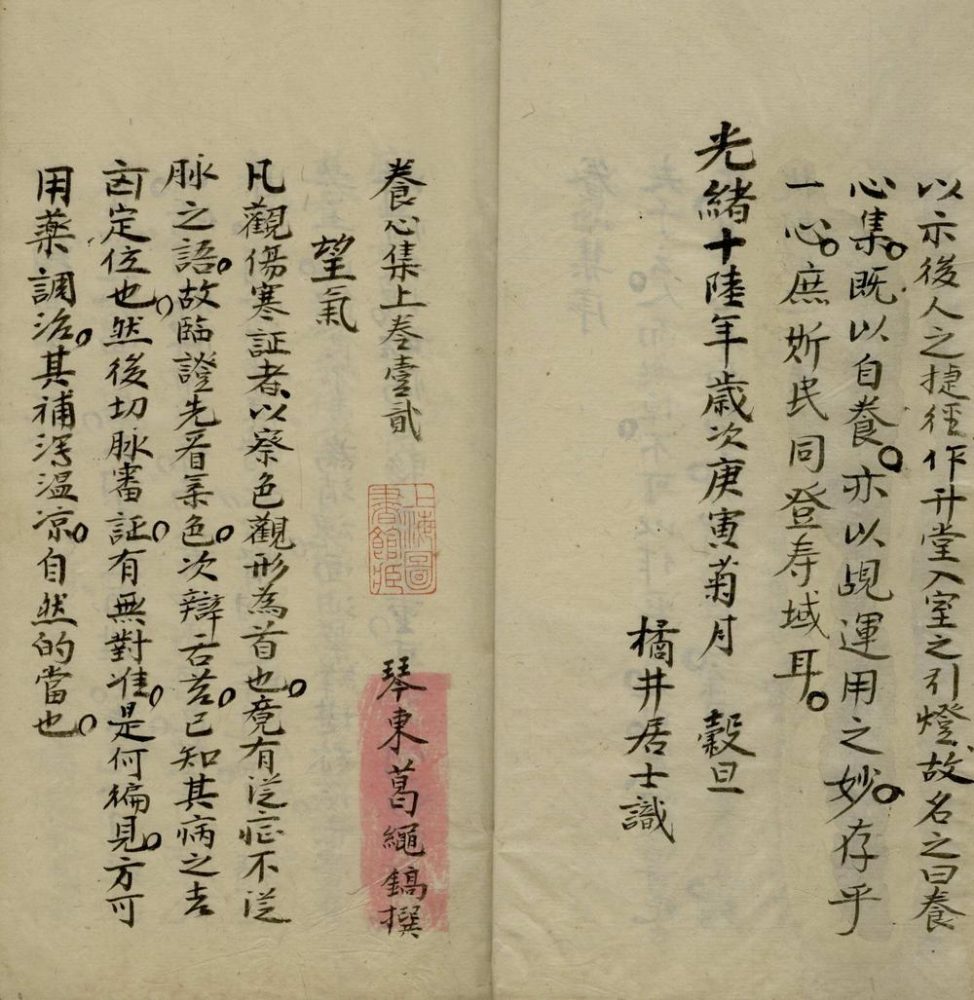 以示後人之捷徑作升堂入室之引燈故名之曰養
心集。既以自養。亦以覘運用之妙。存乎
一心。庶斯民同登寿域耳。
光緒十陸年歲次庚寅菊月 穀旦
橘井居士識
養心集上卷壹貳
上海圖書館藏
琴東葛繩鎬撰
望氣
凡觀傷寒証者、以察色觀形為首也。竟有從症不從
脉之語。故臨證先看氣色。次辯舌苔。已知其病之吉
凶定位也。然後切脉審証。有無對准。是何徧見。方可
用藥調治。其補瀉溫凉。自然的當也。